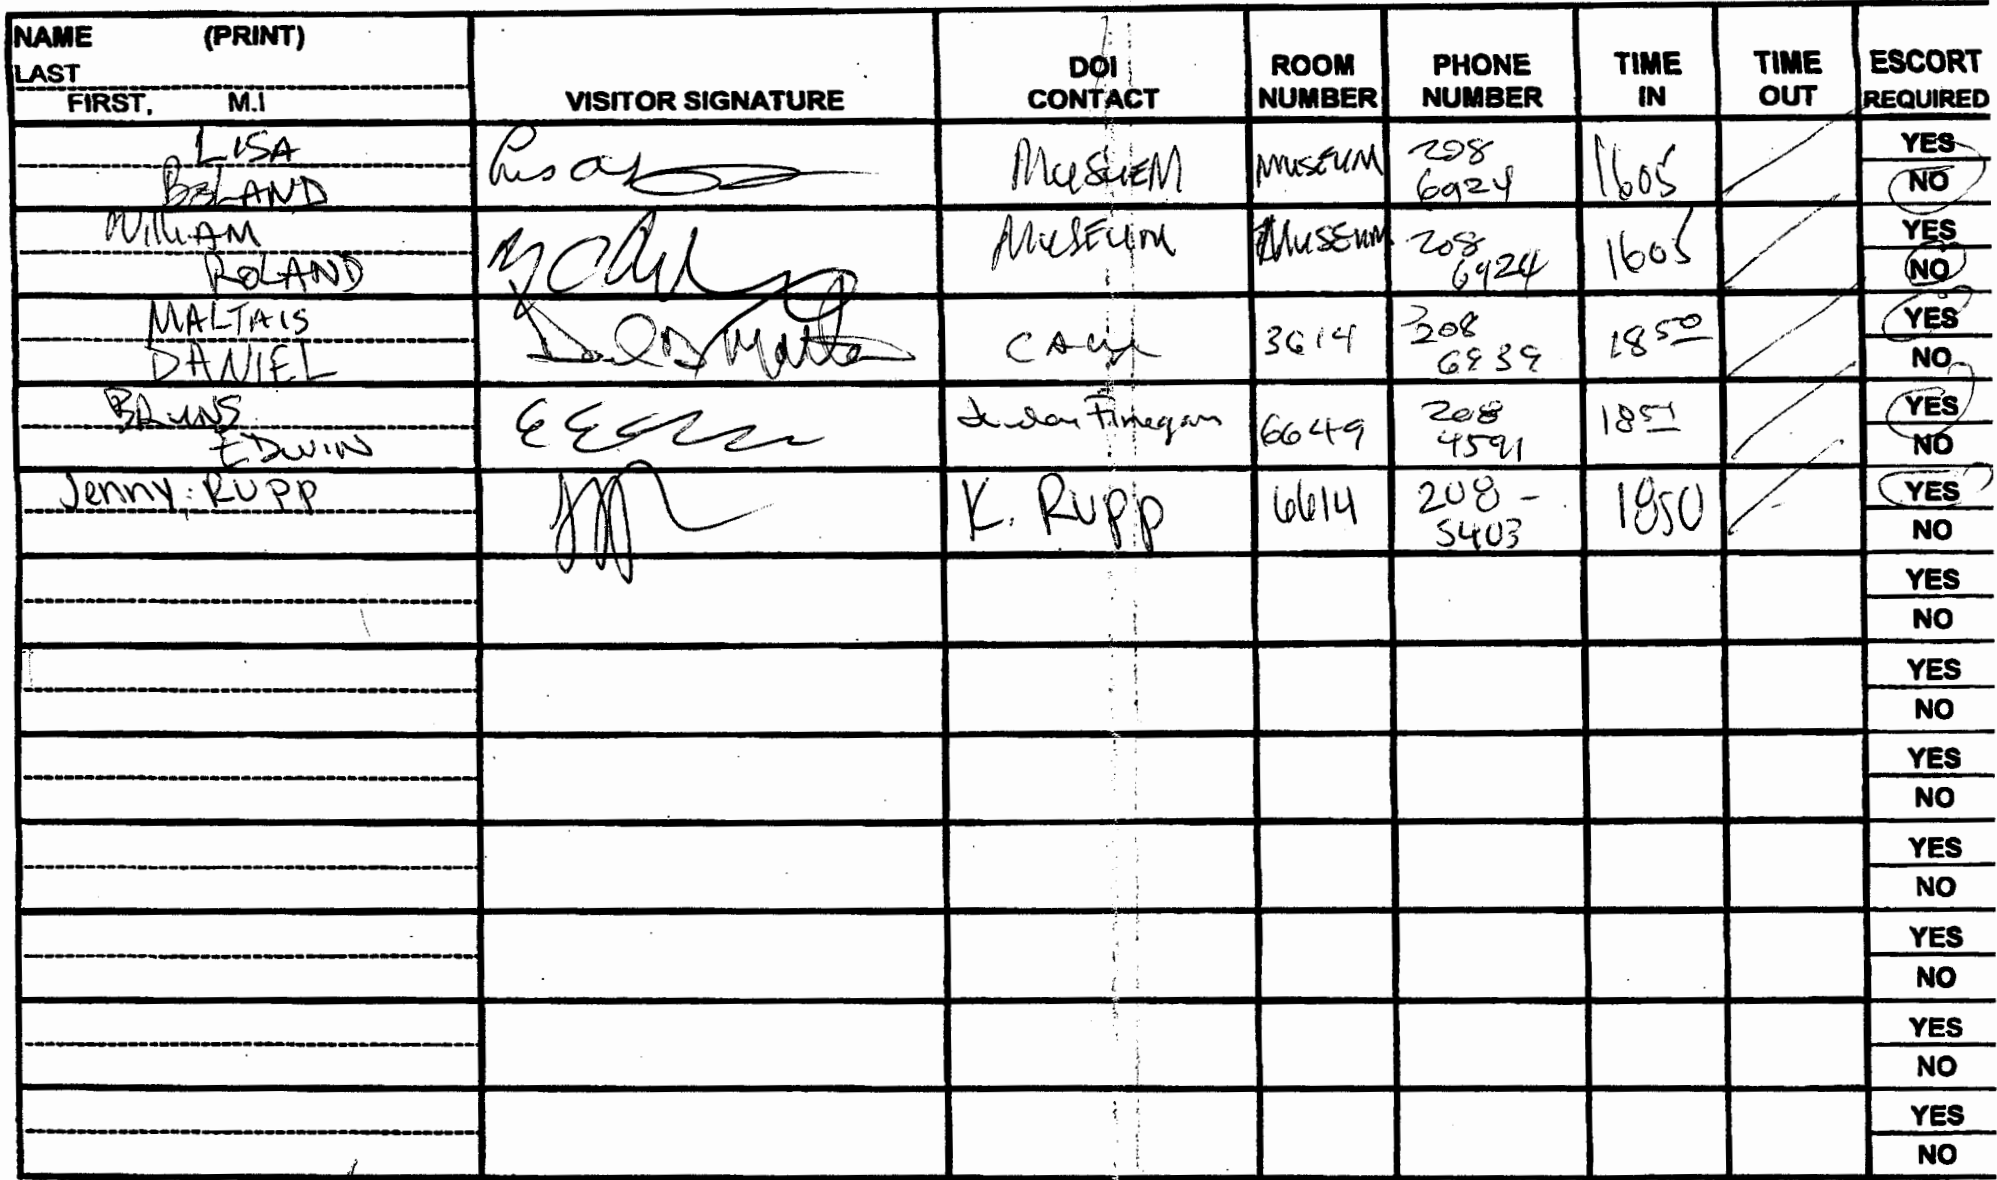 NAME (PRINT)
LAST
FIRST, M.I
VISITOR SIGNATURE
DOI
CONTACT
ROOM
NUMBER
PHONE
NUMBER
TIME
IN
TIME
OUT
ESCORT
REQUIRED
LISA
MUSEUM
MUSEUM
208
6924
1605
YES
NO
WILLIAM
ROLAND
MUSEUM
MUSEUM
208
6924
1605
YES
NO
MALTAIS
DANIEL
3614
208
6939
1850
YES
NO
BRUNS
EDWIN
Finegan
6649
208
4591
1851
YES
NO
Jenny RUPP
K. Rupp
6614
208 -
5403
1850
YES
NO
YES
NO
YES
NO
YES
NO
YES
NO
YES
NO
YES
NO
YES
NO